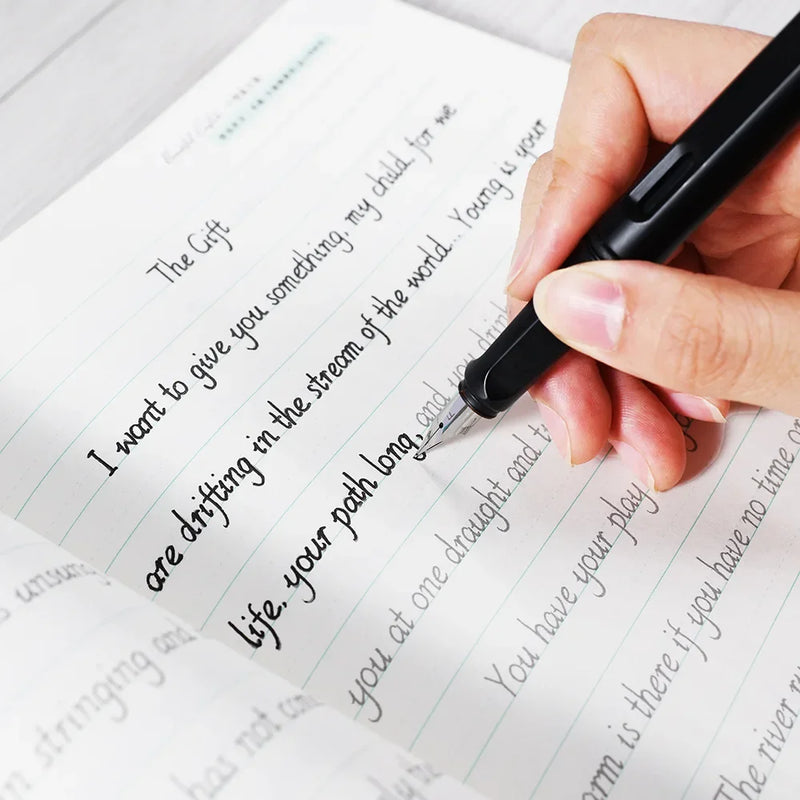 The Gift
I want to give you something, my child. for we
are drifting in the stream of the world.. Young is your
life. your path long, and you drink
you at one draught and t
You have your play
arm is there if you have no time or
The river ru
s unsung
n stringing and
has not com